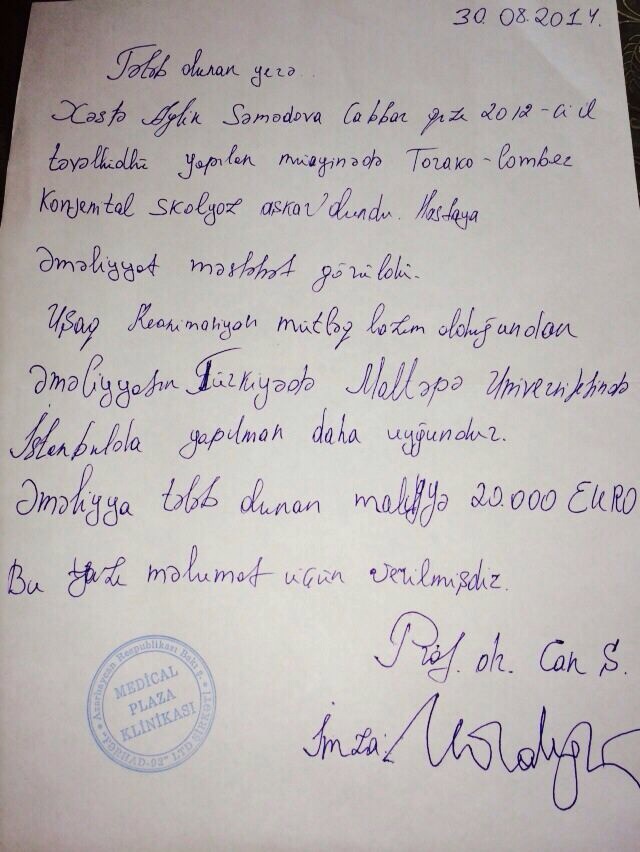 30.08.2014.
Tələb olunan yerə.
Xəstə Aylin Səmədova Cabbar qızı 2012-ci il
təvəllüdlü yapılan müayinədə Torako-lomber
Konjenital skolyoz aşkar olundu. Hastaya
Əməliyyat məsləhət görüldü.
Uşaq Reanimasiyası mütləq lazım olduğundan
Əməliyyatın Türkiyədə Maltəpə Universitetində
İstanbulda yapılması daha uyğundur.
Əməliyya tələb olunan maliyyə 20.000 EURO
Bu yazı məlumat üçün verilmişdir.
Prof. dr. Can S.
İmza:
Azərbaycan Respublikası Bakı ş.
MEDİCAL
PLAZA
KLİNİKASI
"FƏRHAD-93" LTD ŞİRKƏTİ